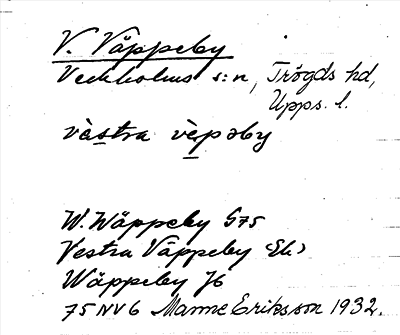 V. Väppeby
Veckholms s:n, Trögds hd,
Upps. l.
vè̱stra vè̱pəby
W. Wäppeby G75
Vestra Väppeby Ek)
Wäppeby J6
75 NV 6 Manne Eriksson 1932.